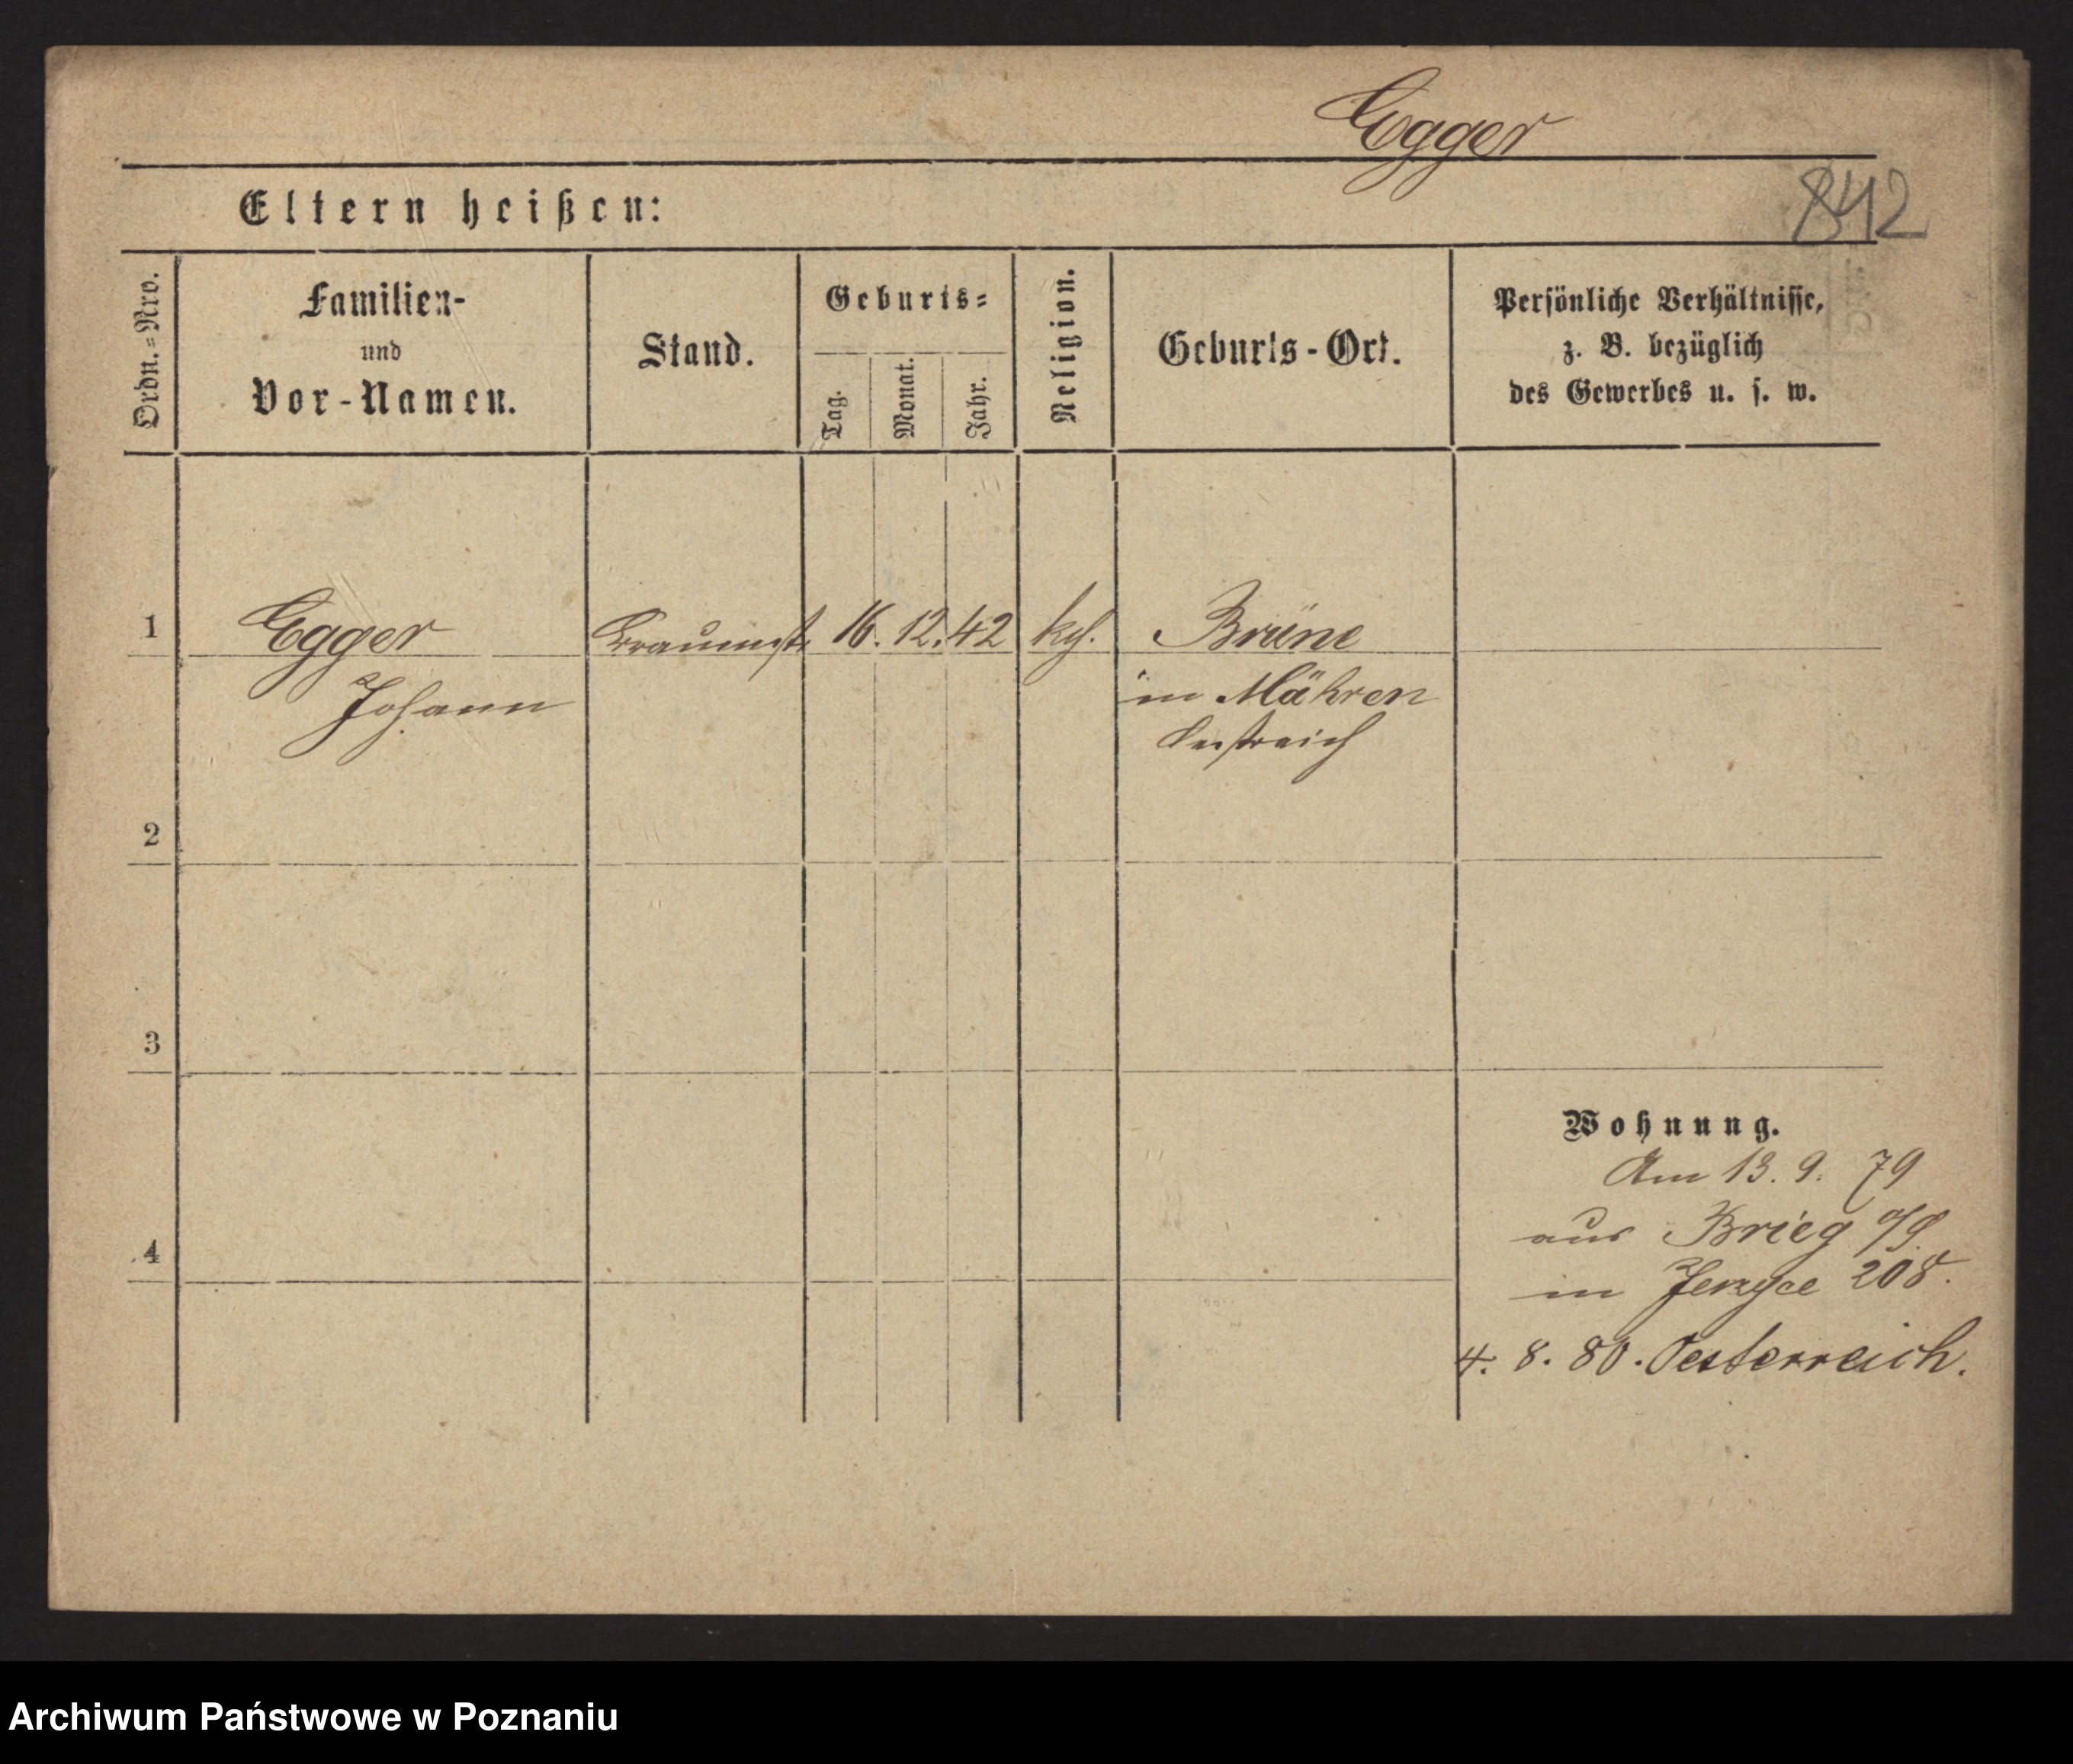 Egger
842
Eltern heißen:
Ordn.=Nro.
Familien-
und
Vor-Namen.
Stand.
Geburts=
Tag.
Monat.
Jahr.
Religion.
Geburts-Ort.
Persönliche Verhältnisse,
z. B. bezüglich
des Gewerbes u. s. w.
1 Egger 16. 12. 42 Brüne
Johann in Mähren
2
3
4
Wohnung.
Am 13. 9. 79
aus Brieg
in Jerzyce 208.
4. 8. 80. Oesterreich.
Archiwum Państwowe w Poznaniu